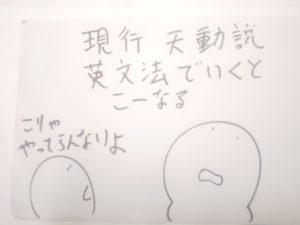 現行 天動説
英文法でいくと
こーなる
こりゃ
やってらんないよ